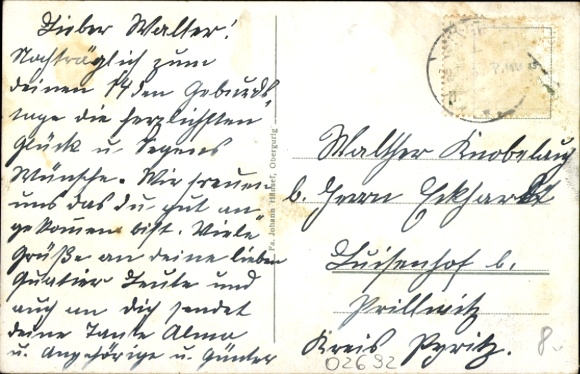 Lieber Walter!
Nachträglich zum
deinen 14den Geburts-
tage die herzlichsten
Glück u. Segens
Wünsche. Wir freuen
uns das du gut an-
gekommen bist. Viele
Grüße an deine lieben
Quatier Leute und
auch an dich sendet
deine Tante Alma
u. Angehörige u. Günter
Fa. Johann Obergurig
Walther Knobelauch
b. Herrn Eckhardt
Luisenhof b.
Prillwitz
Kreis Pyritz.
8.-
02692